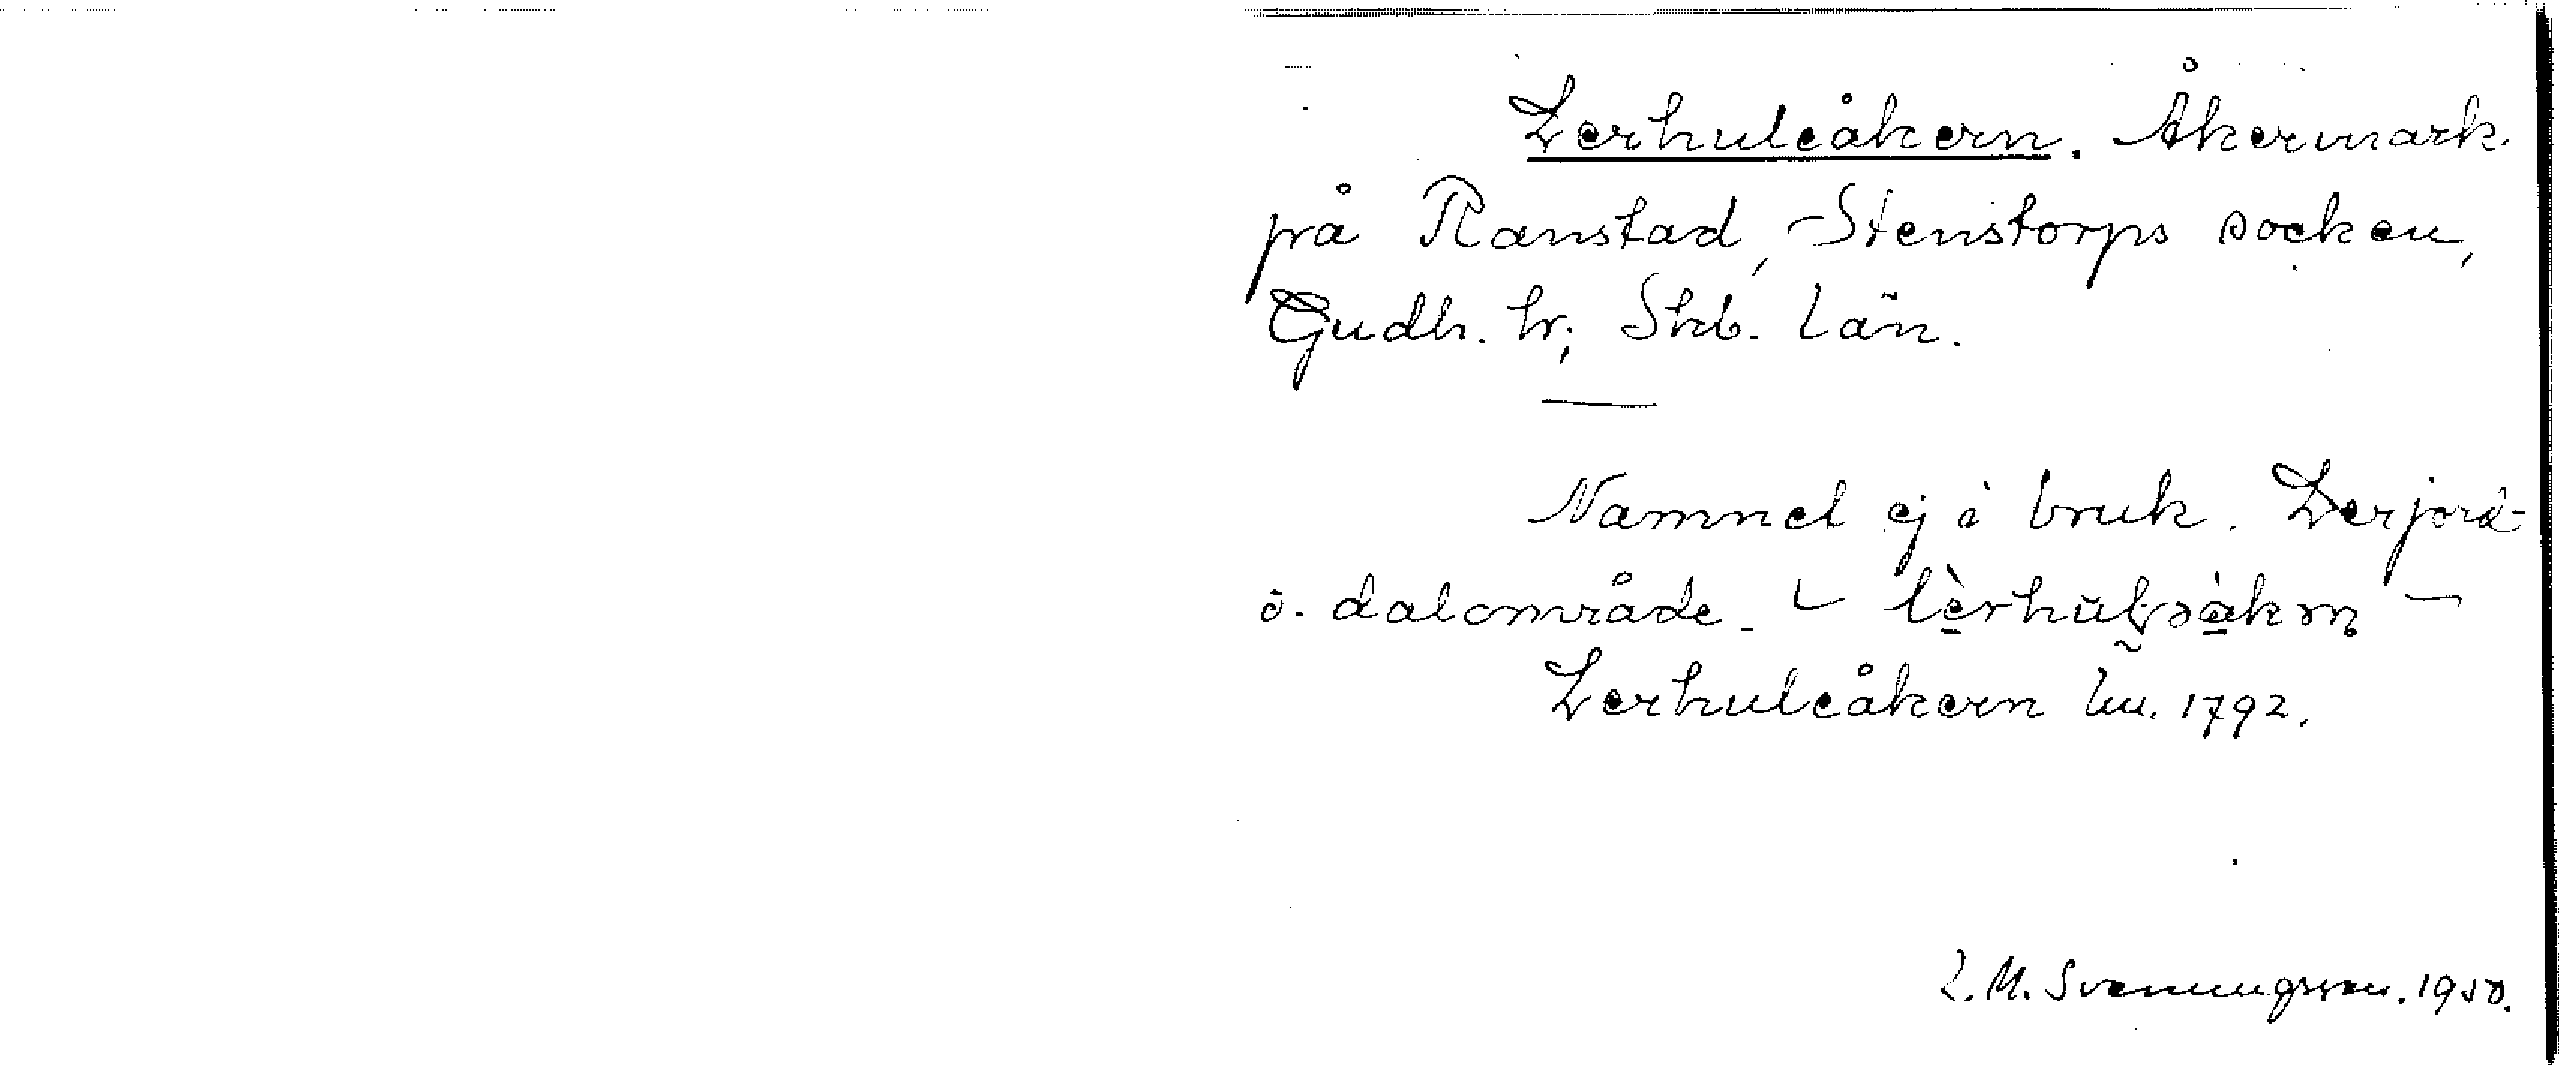 Lerhuleåkern. Åkermark
på Ranstad, Stenstorps socken,
Gudh. hr; Skb. län.
Namnet ej i bruk. Lerjord-
o. dalområde.
Lerhuleåkern lm. 1792.
L. M. Svenungsson. 1950.